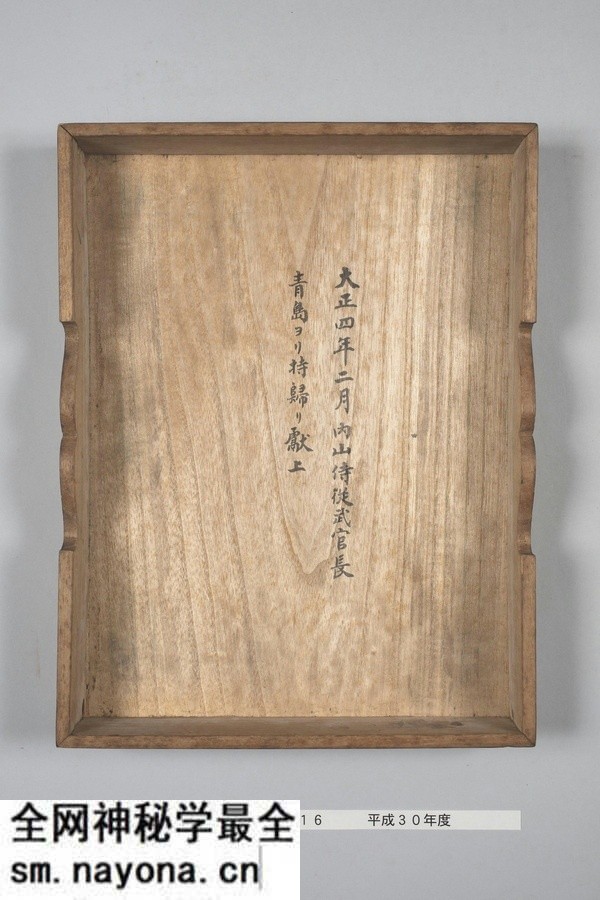 大正四年二月内山侍従武官長
青島ヨリ持歸リ獻上
16 平成30年度
全网神秘学最全
sm.nayona.cn